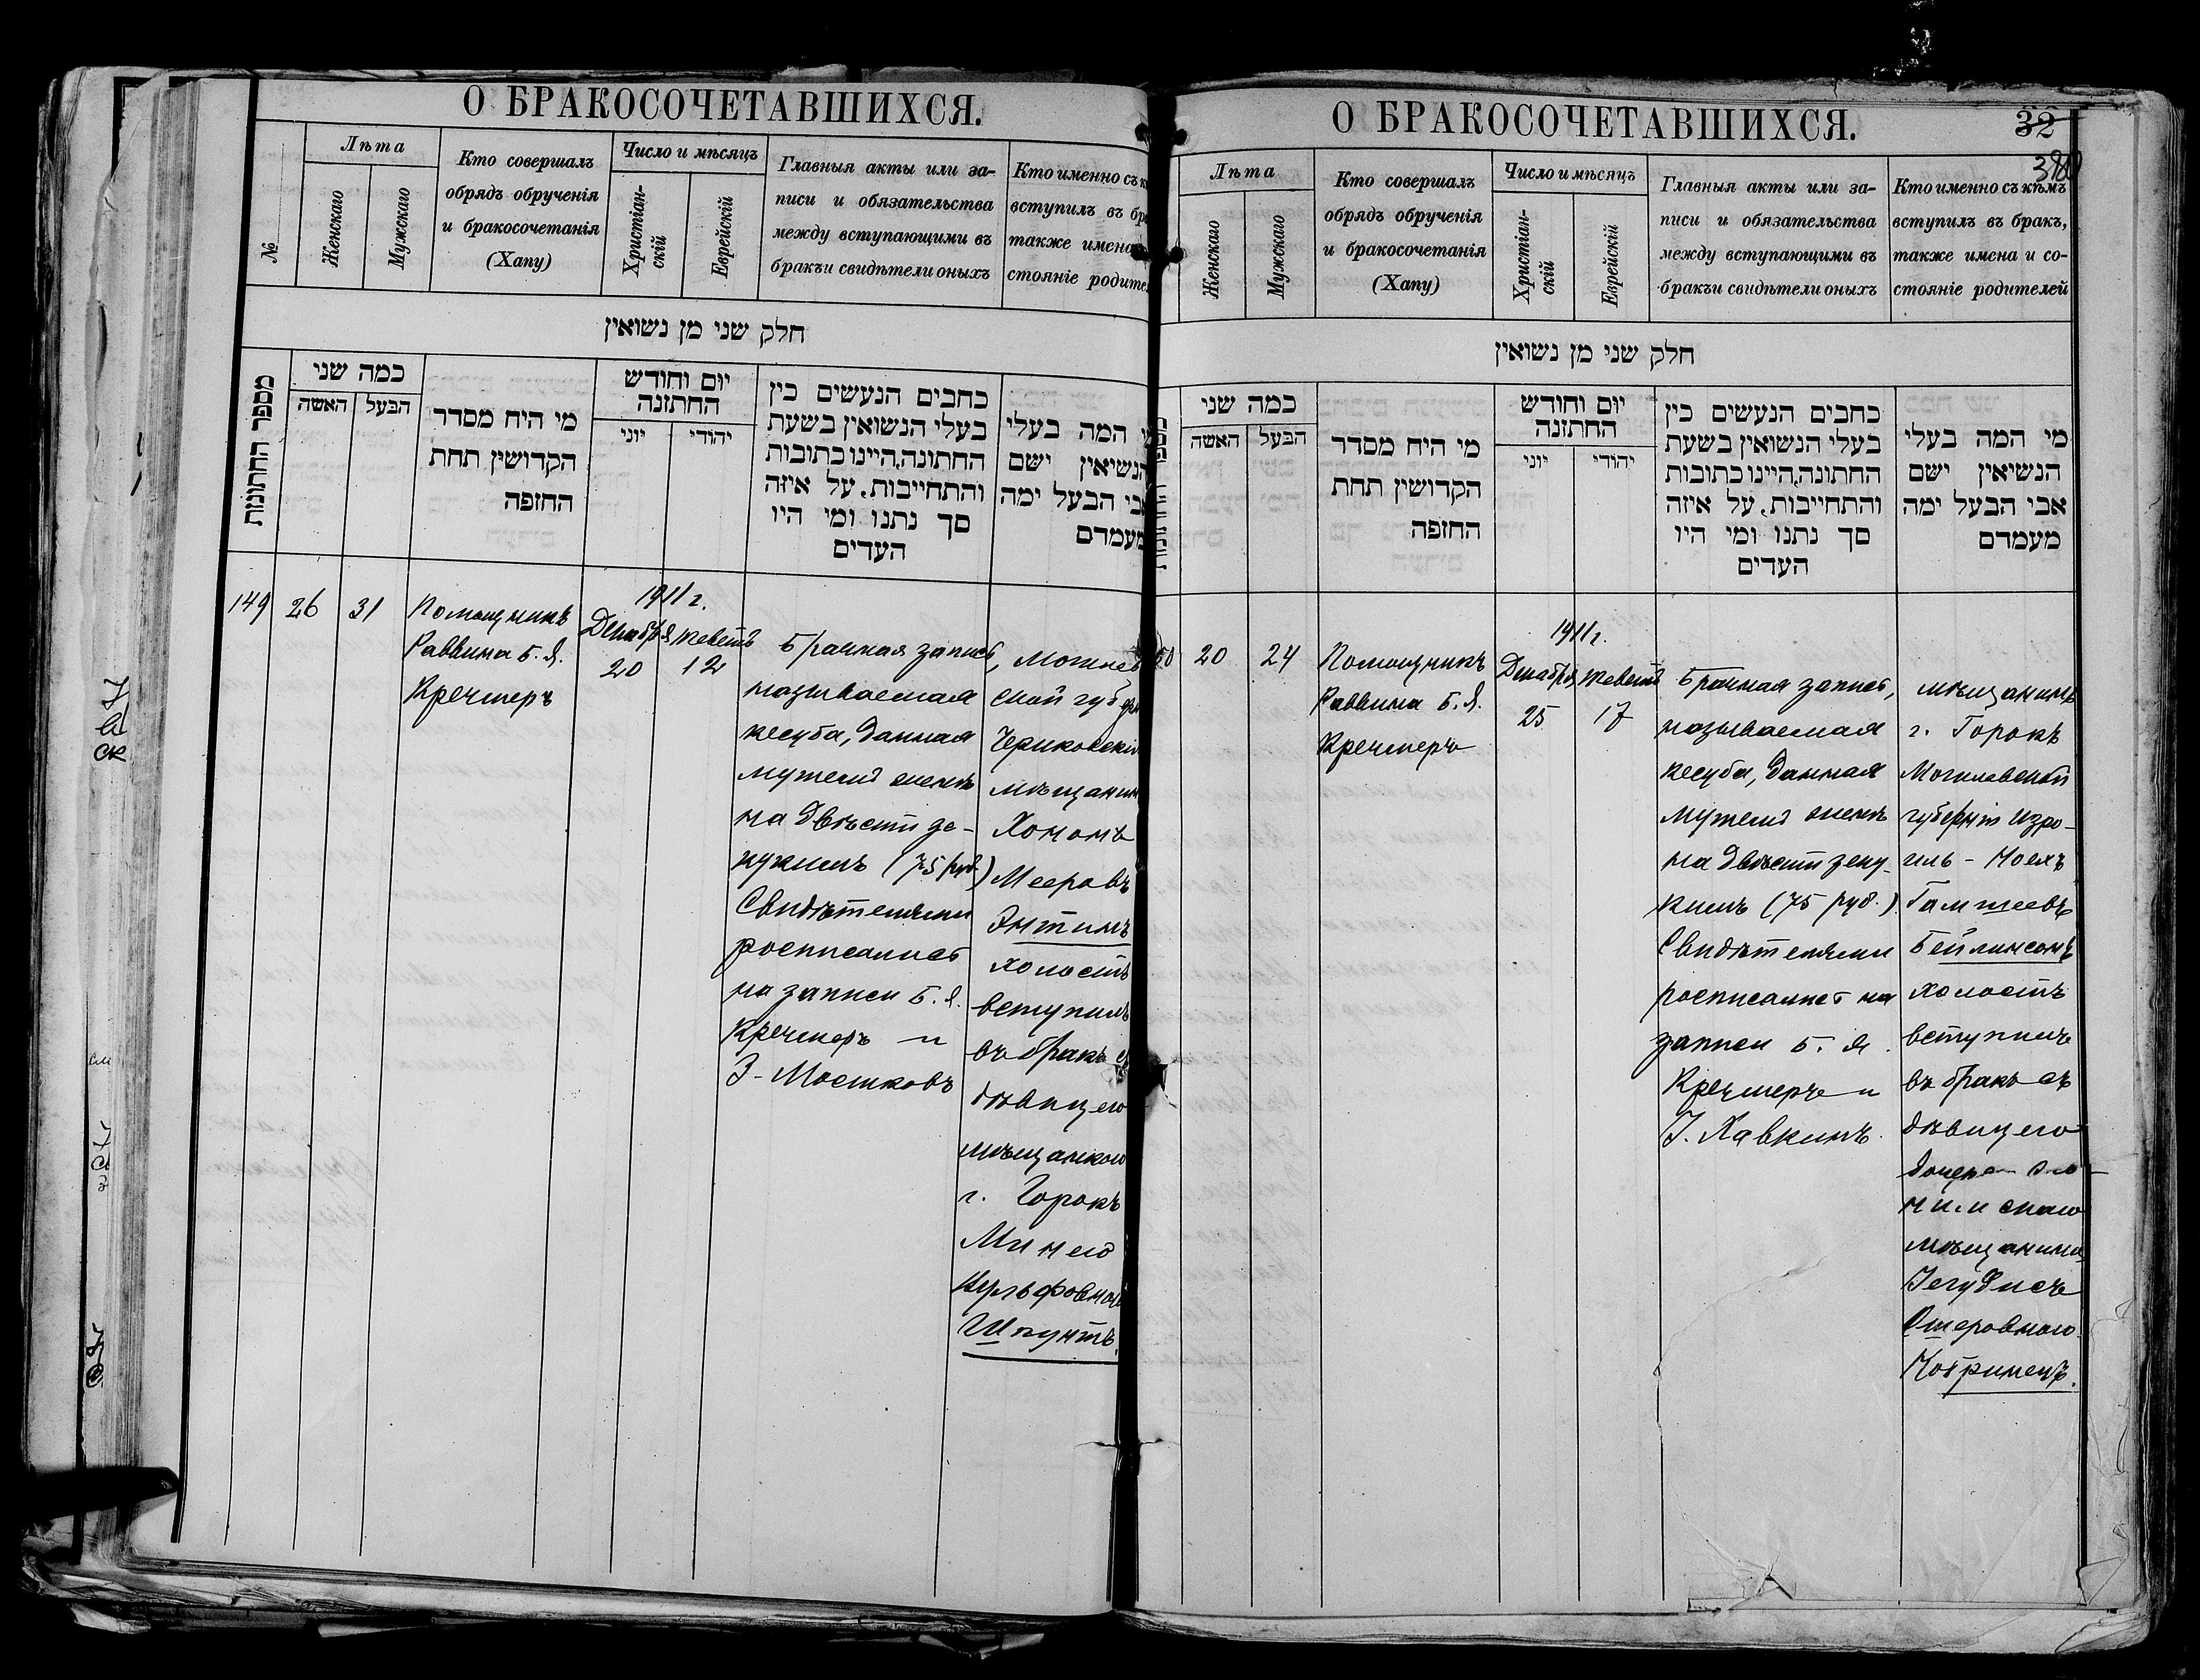 О БРАКОСОЧЕТАВШИХСЯ.
№
Лѣта
Женскаго
Мужскаго
Кто совершалъ
обрядъ обрученія
и бракосочетанія
(Хапу)
Число и мѣсяцъ
Христіан-
скій
Еврейскій
Главныя акты или за-
писи и обязательства
между вступающими въ
бракъи свидѣтели оныхъ
Кто именно съ к
вступилъ въ бра
также имена
стояніе родите
חלק שני מן נשואין
מספר החתונות
כמה שני
האשה
הבעל
מי היח מסדר
הקדושין תחת
החזפה
יום וחודש
החתזנה
יוני
יהודי
כחבים הנעשים כין
בעלי הנשואין בשעת
החתונה,היינו כתובות
והתחייבות. על איזה
סך נתנו ומי היו
העדים
המה בעלי
הנשיאין ישם
אבי הבעל ימה
מעמדם
149
26
31
Помощникъ
Раввина Б. Я.
Кречмеръ
1911 г.
Декабря
20
теветъ
12
Брачная запись,
называемая
кесуба, данная
мужемъ женѣ
на двѣсти зе-
кукимъ (75 руб.)
Свидѣтелями
росписались
на записи Б. Я.
Кречмеръ и
З. Мошковъ
Могилев
ской губерн
Чериковскій
мѣщанин
Хононъ
Мееровъ
Энтинъ
холостъ
вступилъ
въ бракъ съ
дѣвицею
мѣщанкою
г. Горокъ
Минею
Вульфовною
Шпунтъ.
О БРАКОСОЧЕТАВШИХСЯ.
32
Лѣта
Женскаго
Мужскаго
Кто совершалъ
обрядъ обрученія
и бракосочетанія
(Хапу)
Число и мѣсяцъ
Христіан-
скій
Еврейскій
Главныя акты или за-
писи и обязательства
между вступающими въ
бракъи свидѣтели оныхъ
Кто именно съ кѣмъ
вступилъ въ бракъ,
также имена и со-
стояніе родителей
חלק שני מן נשואין
כמה שני
האשה
הבעל
מי היח מסדר
הקדושין תחת
החזפה
יום וחודש
החתזנה
יוני
יהודי
כחבים הנעשים כין
בעלי הנשואין בשעת
החתונה,היינו כתובות
והתחייבות. על איזה
סך נתנו ומי היו
העדים
מי המה בעלי
הנשיאין ישם
אבי הבעל ימה
מעמדם
50
20
24
Помощникъ
Раввина Б. Я.
Кречмеръ
1911 г.
Декабря
25
тевета
17
Брачная запись,
называемая
кесуба, данная
мужемъ женѣ
на двѣсти зеку-
кимъ (75 руб.).
Свидѣтелями
росписались на
записи Б. Я.
Кречмеръ и
І. Хавкинъ.
мѣщанинъ
г. Горокъ
Могилевской
губерніи Изро-
иль - Ноехъ
Гамшеевъ
Бейлинсонъ
холостъ
вступилъ
въ бракъ съ
дѣвицею
дочерью сло-
нимскаго
мѣщанина
Іегудисъ
Ошеровною
Кобринецъ.